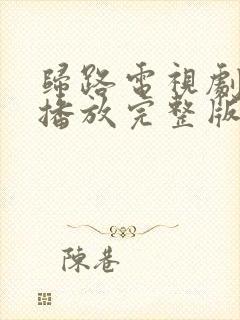 歸路電視劇
播放完整版
陳巷